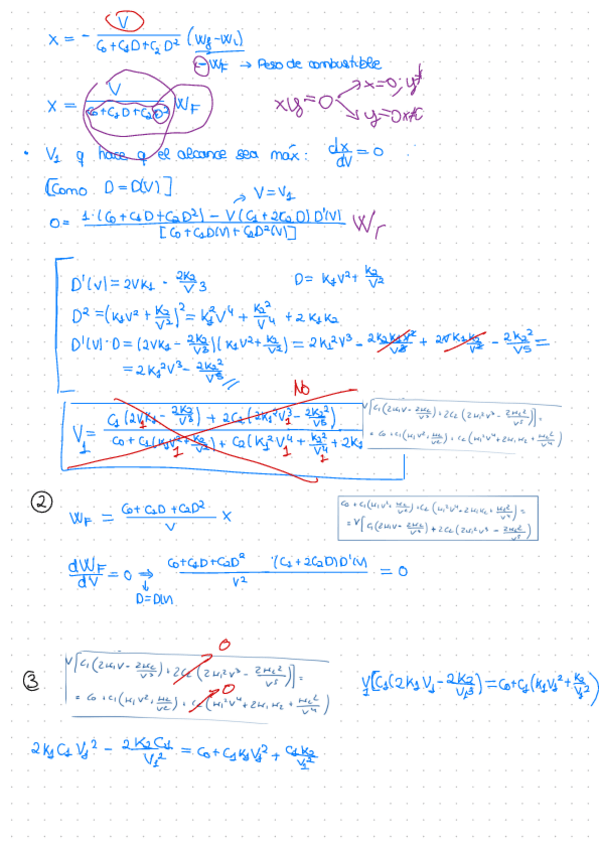 x = - V / (C0 + C1D + C2D²) (Wf - Wi)
- WF → Peso de combustible
x = V / (C0 + C1D + C2D²) WF
xy = 0 → x=0; y≠
→ y=0 x≠
• V1 q hace q el alcance sea máx: dx/dV = 0
[Como D = D(V)]
→ V = V1
0 = 1·(C0 + C1D + C2D²) - V(C1 + 2C2D) D'(V) / [C0 + C1D(V) + C2D²(V)] WF
D'(V) = 2VK1 - 2K2/V³ D = K1V² + K2/V²
D² = (K1V² + K2/V²)² = K1²V⁴ + K2²/V⁴ + 2K1K2
D'(V)·D = (2VK1 - 2K2/V³)(K1V² + K2/V²) = 2K1²V³ - 2K2K1V²/V³ + 2VK1K2/V² - 2K2²/V⁵ =
= 2K1²V³ - 2K2²/V⁵
NO
V1 = C1(2V1K1 - 2K2/V³) + 2C2(2K1²V1³ - 2K2²/V⁵) / C0 + C1(K1V² + K2/V²) + C2(K1²V⁴ + K2²/V⁴ + 2K1
V[C1(2K1V - 2K2/V³) + 2C2(2K1²V³ - 2K2²/V⁵)] =
= C0 + C1(K1V² + K2/V²) + C2(K1²V⁴ + 2K1K2 + K2²/V⁴)
②
WF = (C0 + C1D + C2D²) / V x
C0 + C1(K1V² + K2/V²) + C2(K1²V⁴ + 2K1K2 + K2²/V⁴) =
= V[C1(2K1V - 2K2/V³) + 2C2(2K1²V³ - 2K2²/V⁵)]
dWF/dV = 0 ⇒ C0 + C1D + C2D² ·(C1 + 2C2D) D'(V) / V² = 0
↓
D = D(V)
③
0
V[C1(2K1V - 2K2/V³) + 2C2(2K1²V³ - 2K2²/V⁵)] =
0
= C0 + C1(K1V² + K2/V²) + C2(K1²V⁴ + 2K1K2 + K2²/V⁴)
V1[C1(2K1V1 - 2K2/V1³) = C0 + C1(K1V1² + K2/V1²)
2K1C1V1² - 2K2C1/V1² = C0 + C1K1V1² + C1K2/V1²